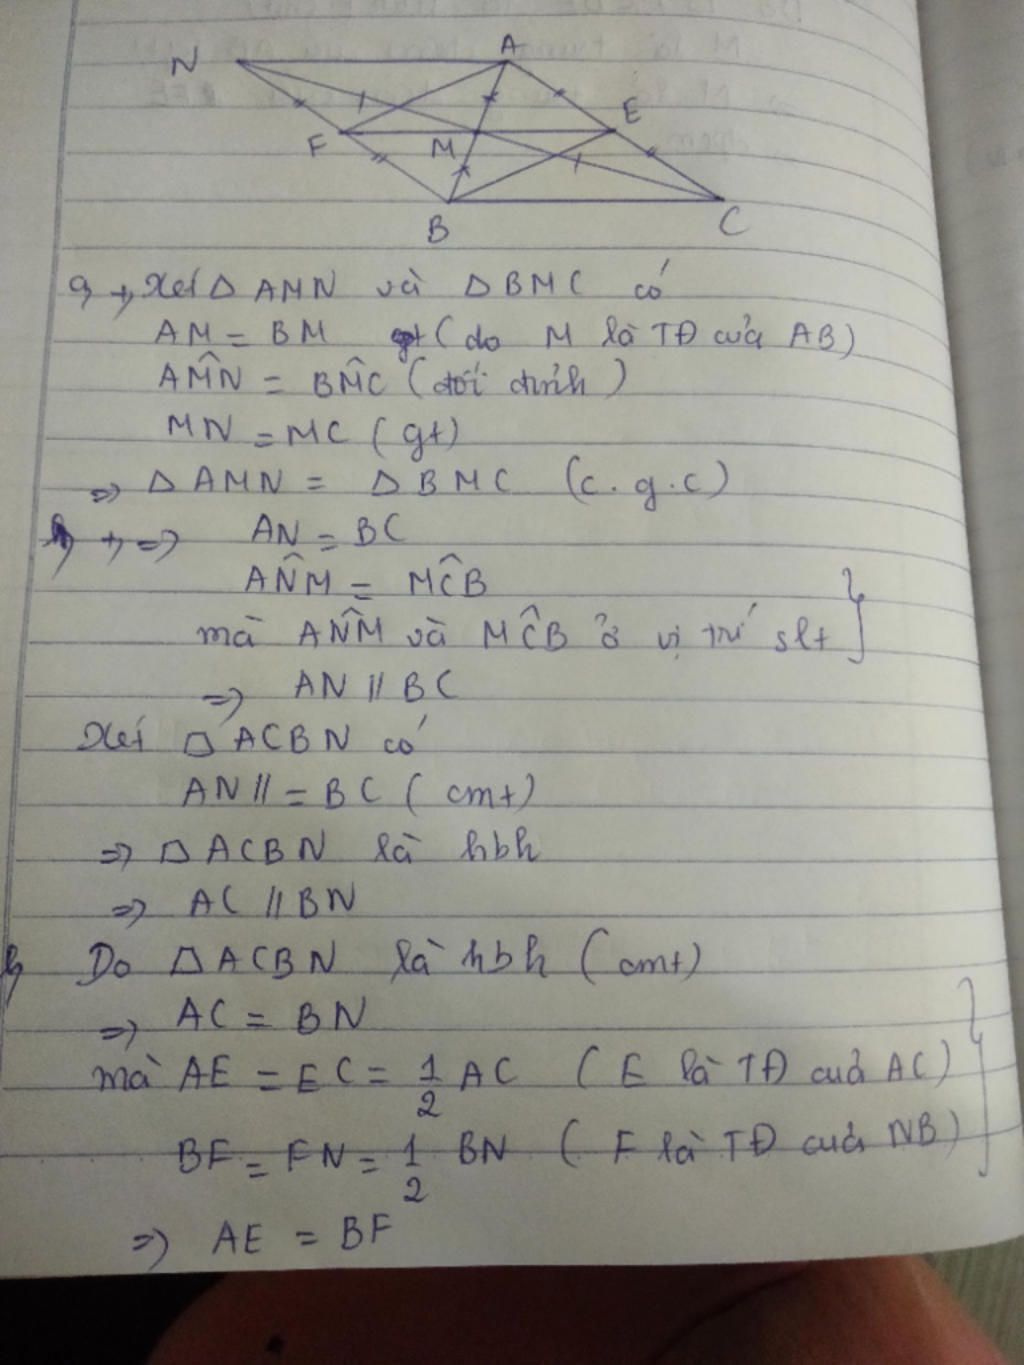 N
A
F
M
E
B
C
a, +, Xét △ AMN và △ BMC có
AM = BM gt ( do M là TĐ của AB)
AM̂N = BM̂C (đối đỉnh)
MN = MC (gt)
=> △ AMN = △ BMC (c.g.c)
+, => AN = BC
AN̂M = MĈB
mà AN̂M và MĈB ở vị trí slt
=> AN // BC
Xét ▱ ACBN có
AN // = BC ( cmt)
=> ▱ ACBN là hbh
=> AC // BN
b, Do ▱ ACBN là hbh (cmt)
=> AC = BN
mà AE = EC = 1/2 AC ( E là TĐ của AC)
BF = FN = 1/2 BN ( F là TĐ của NB)
=> AE = BF